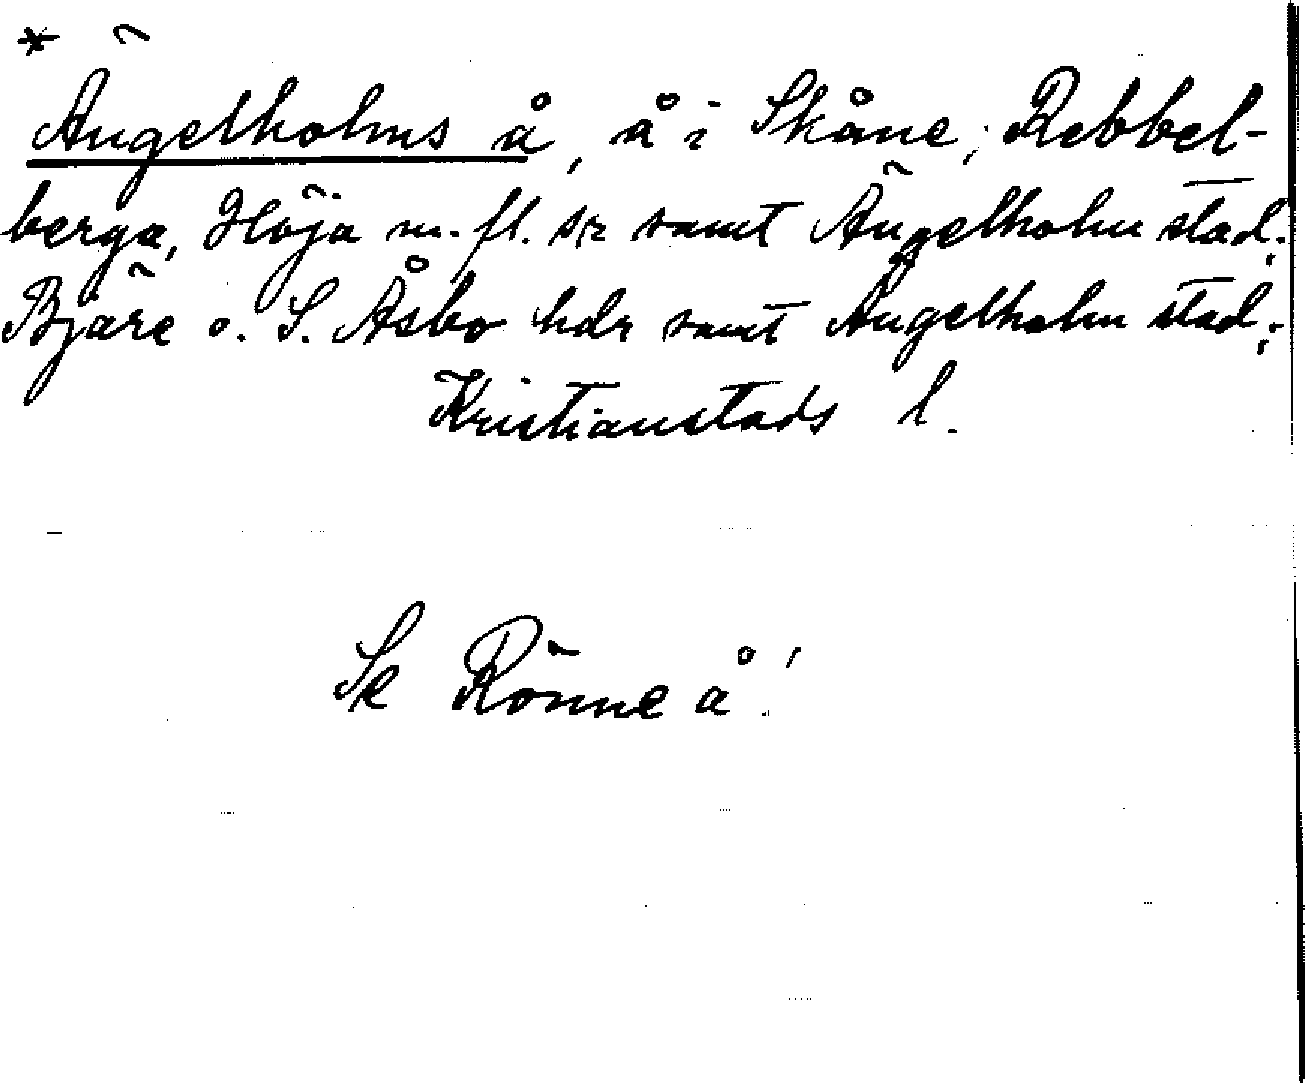 * Ängelholms å, å i Skåne; Rebbel-
berga, Höja m. fl. sr samt Ängelholm stad;
Bjäre o. S. Åsbo hdr samt Ängelholm stad;
Kristianstads l.
Se Rönne å!